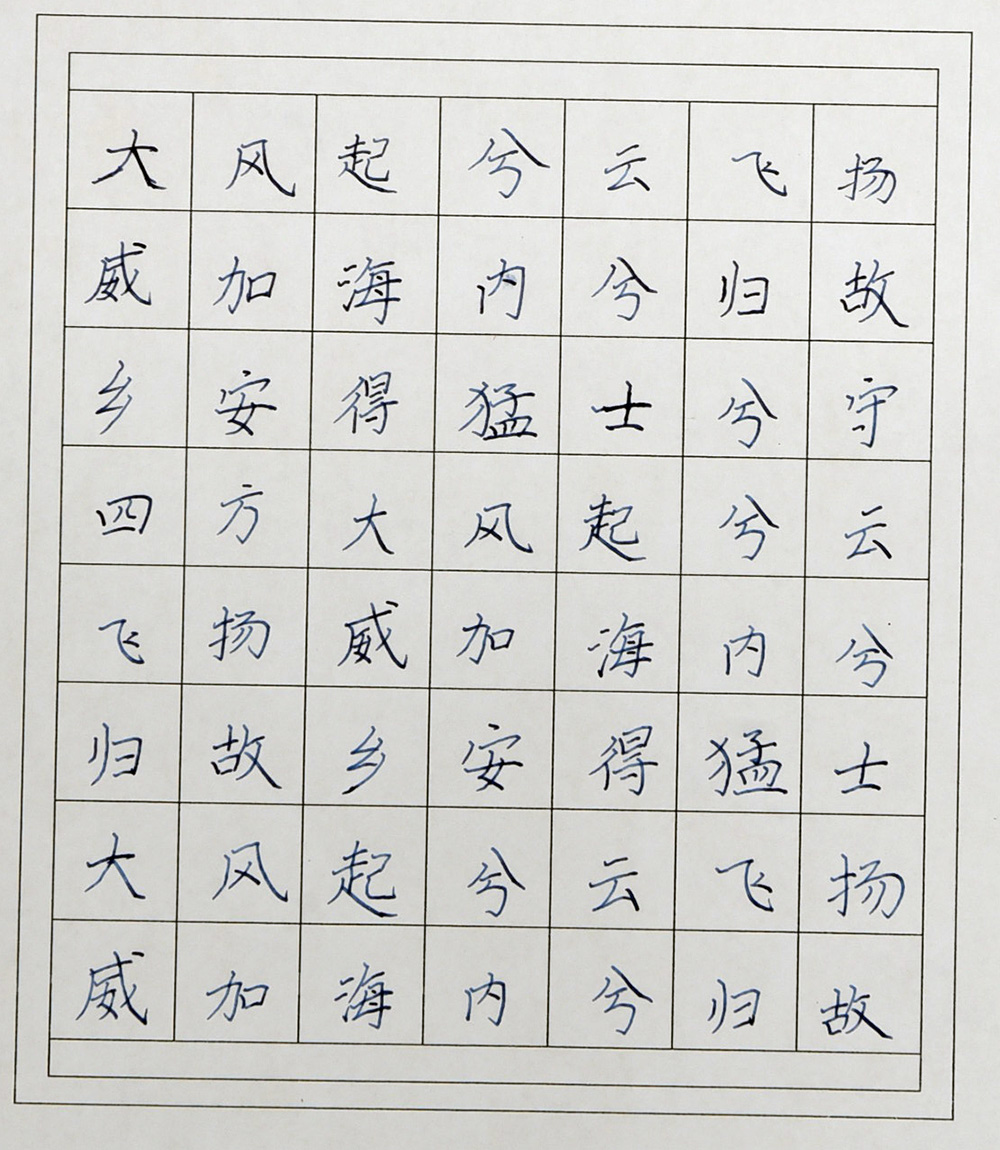 大风起兮云飞扬
威加海内兮归故
乡安得猛士兮守
四方大风起兮云
飞扬威加海内兮
归故乡安得猛士
大风起兮云飞扬
威加海内兮归故